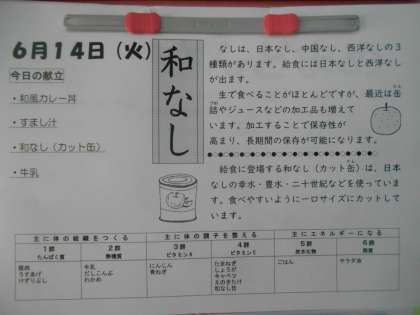 6月14日（火）
今日の献立
・和風カレー丼
・すまし汁
・和なし（カット缶）
・牛乳
和なし
なしは、日本なし、中国なし、西洋なしの３
種類があります。給食には日本なしと西洋なし
が出ます。
生で食べることがほとんどですが、最近は缶
詰やジュースなどの加工品も増えて
います。加工することで保存性が
高まり、長期間の保存が可能になります。
給食に登場する和なし（カット缶）は、日本
なしの幸水・豊水・二十世紀などを使っていま
す。食べやすいように一口サイズにカットして
います。
主に体の組織をつくる
主に体の調子を整える
主にエネルギーになる
1群
たんぱく質
2群
無機質
3群
ビタミンA
4群
ビタミンC
5群
炭水化物
6群
脂質
豚肉
うずあげ
けずりぶし
牛乳
だしこんぶ
わかめ
にんじん
青ねぎ
たまねぎ
しょうが
キャベツ
えのきたけ
和なし缶
ごはん
サラダ油